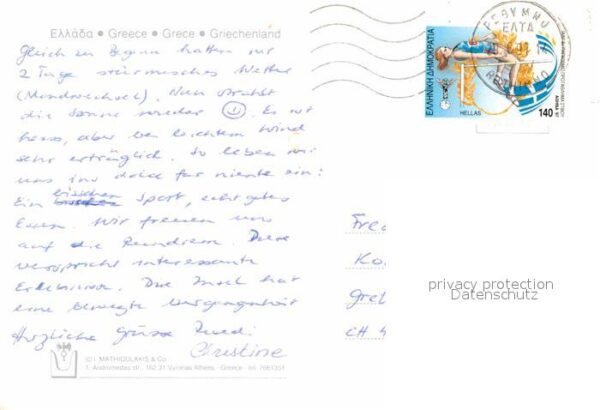 Ελλάδα • Greece • Grece • Griechenland
Gleich zu Beginn hatten wir
2 Tage stürmisches Wetter
(Mondwechsel). Nun strahlt
die Sonne wieder. Es ist
heiss, aber bei leichtem Wind
sehr erträglich. So leben wir
uns ins dolce far niente ein:
Ein bisschen Sport, sehr gutes
Essen. Wir freuen uns
auf die Rundreise. Diese
verspricht interessante
Erlebnisse. Die Insel hat
eine bewegte Vergangenheit
Herzliche Grüsse Ruedi
Christine
(C) I. MATHIOULAKIS & Co
1. Andromedas str., 162 31 Vyronas Athens - Greece - tel. 7661351
ΕΛΛΗΝΙΚΗ ΔΗΜΟΚΡΑΤΙΑ
HELLAS
140
ΡΕΘΥΜΝΟ
ΕΛΤΑ
Fred
Ko
Gre
CH 4
privacy protection
Datenschutz